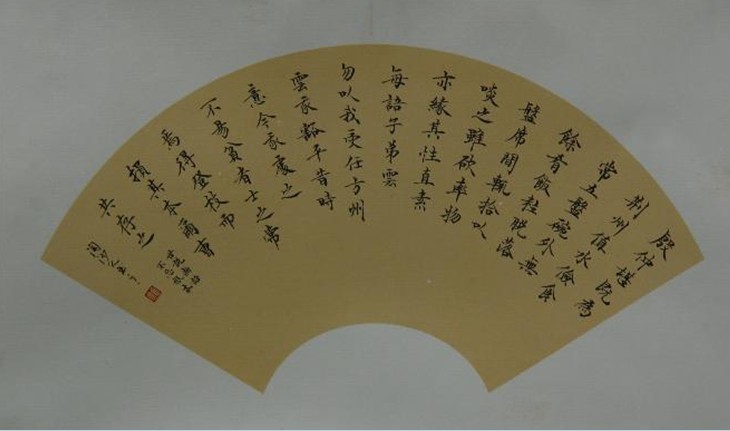 殷仲堪既為
荆州值水儉食
常五盤碗外無
餘肴飯粒脱落
盤席間輒拾以
啖之雖欲率物
亦緣其性真素
每語子弟雲
勿以我受任方州
雲我豁平昔時
意今我處之
不易貧者士之常
焉得登枝而
損其本爾曹
其存之